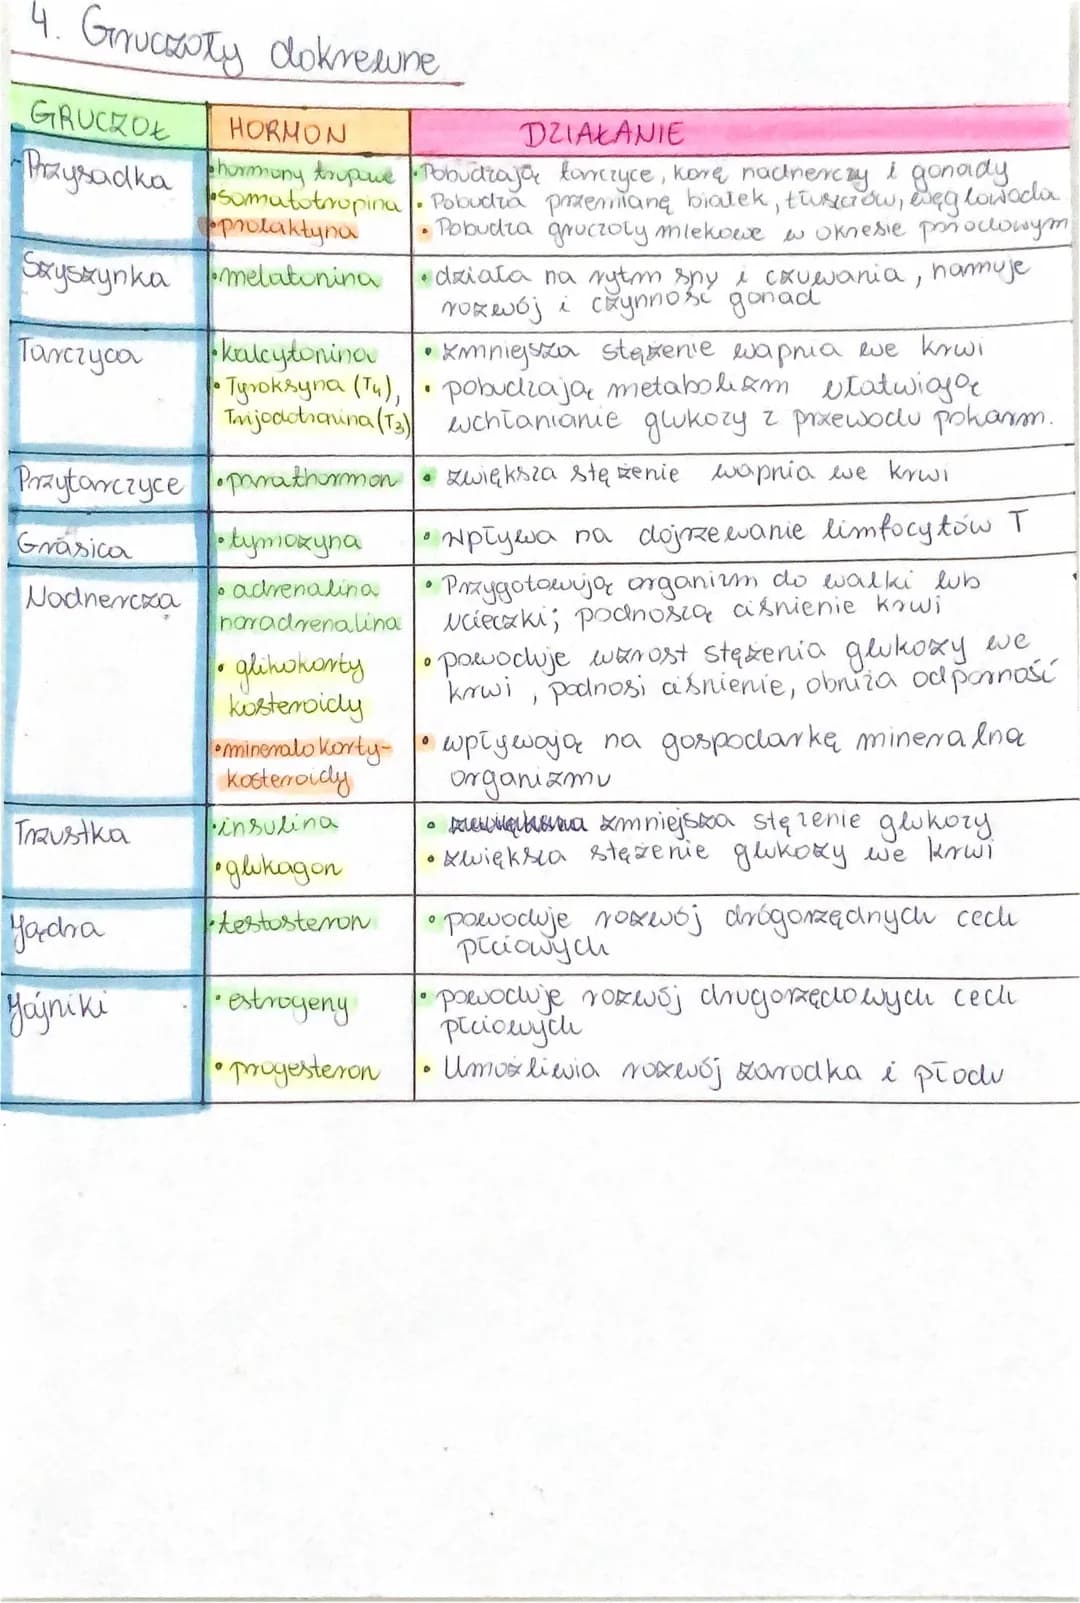 4. Gruczoły dokrewne
GRUCZOŁ HORMON DZIAŁANIE
Przysadka
• hormony tropowe
• Somatotropina
• prolaktyna
• Pobudzają tarczyce, korę nadnerczy i gonady
• Pobudza przemianę białek, tłuszczów, węglowoda
• Pobudza gruczoły mlekowe w okresie porodowym
Szyszynka
• melatonina
• działa na rytm spy i czuwania, hamuje
rozwój i czynność gonad
Tarczyca
• kalcytonina
• Tyroksyna (T4),
Trijodotronina (T3)
• zmniejsza stężenie wapnia we krwi
• pobudzają metabolizm ułatwiają
wchłanianie glukozy z przewodu pokarm.
Przytarczyce
• parathormon
• zwiększa stężenie wapnia we krwi
Grasica
• tymozyna
• Wpływa na dojrzewanie limfocytów T
Nadnercza
• adrenalina
noradrenalina
• glikokorty
kosteroidy
• mineralokorty-
kosteroidy
• Przygotowują organizm do walki lub
ucieczki; podnoszą ciśnienie krwi
• powoduje wzrost stężenia glukozy we
krwi, podnosi ciśnienie, obniża odporność
• wpływają na gospodarkę mineralną
organizmu
Trzustka
• insulina
• glukagon
• zmniejsza stężenie glukozy
• zwiększa stężenie glukozy we krwi
Jądra
• testosteron
• powoduje rozwój drógorzędnych cech
płciowych
Jajniki
• estrogeny
• progesteron
• powoduje rozwój drugorzędowych cech
płciowych
• Umożliwia rozwój zarodka i płodu